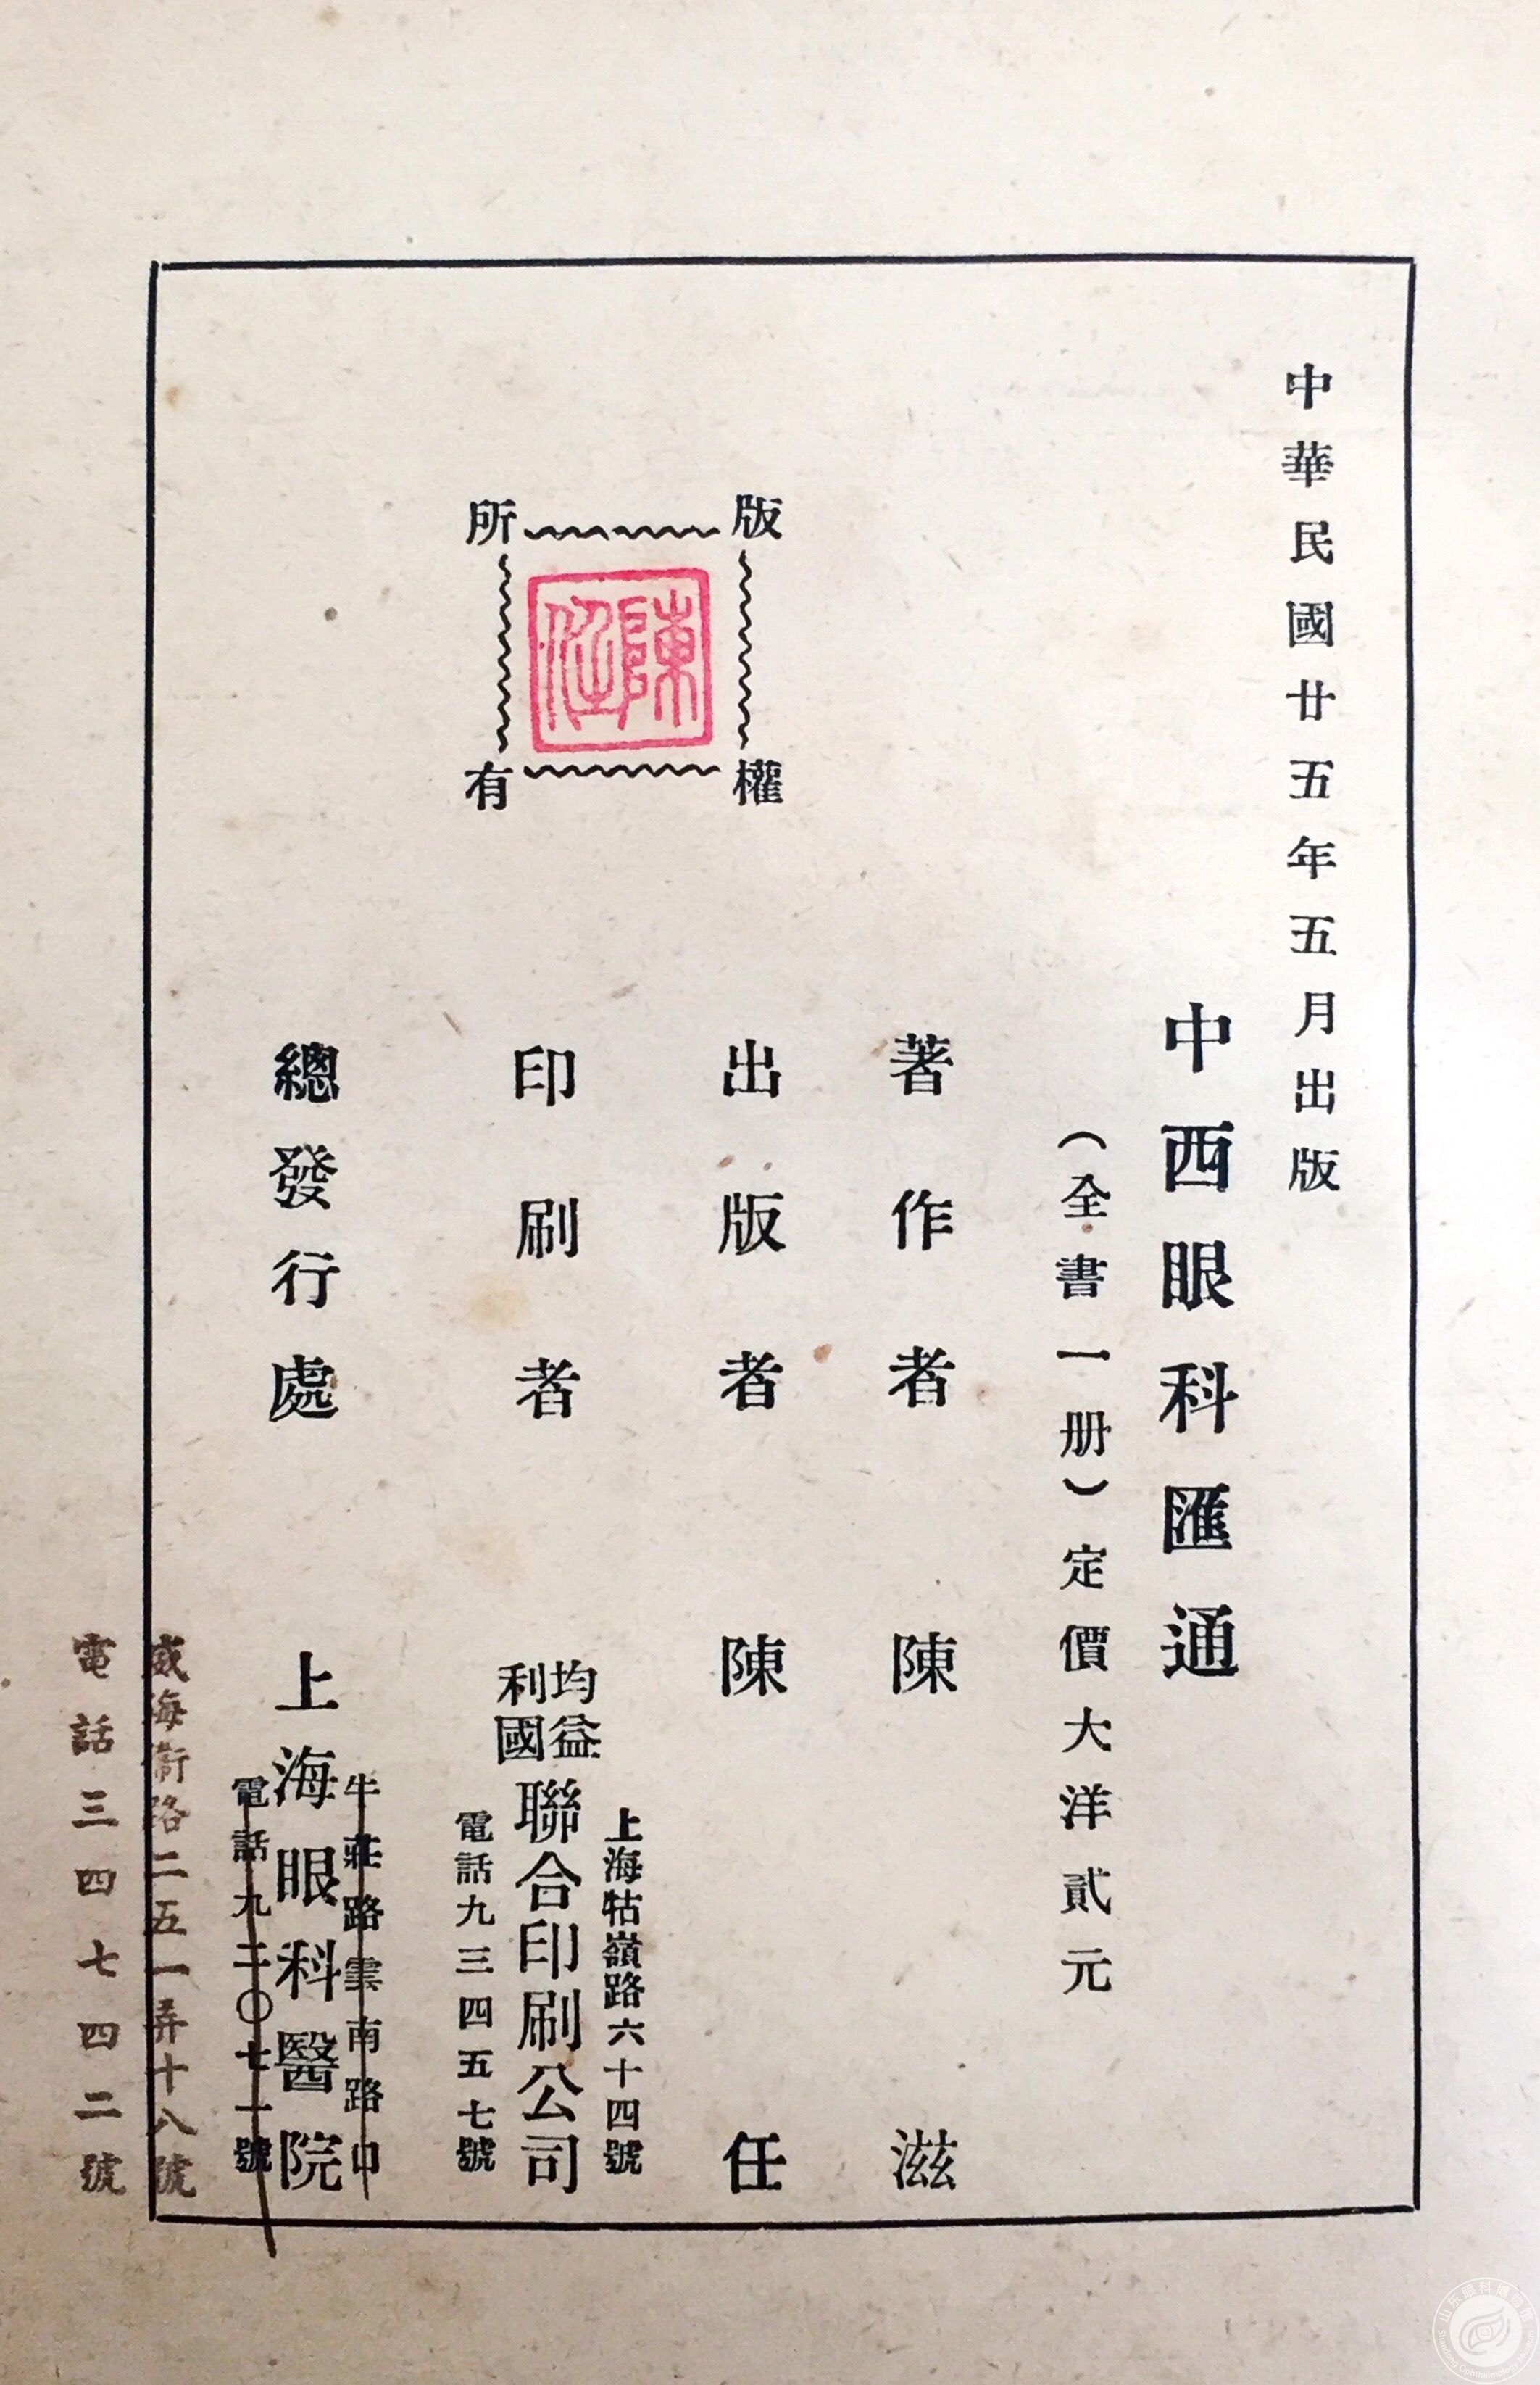 中華民國廿五年五月出版
中西眼科匯通
（全書一册）定價大洋貳元
版權所有
陳任
著作者 陳滋
出版者 陳任
印刷者 均益利國聯合印刷公司
上海牯嶺路六十四號
電話九三四五七號
總發行處 上海眼科醫院
牛莊路雲南路口
電話九二〇七一號
威海衞路二五一弄十八號
電話三四七四二號